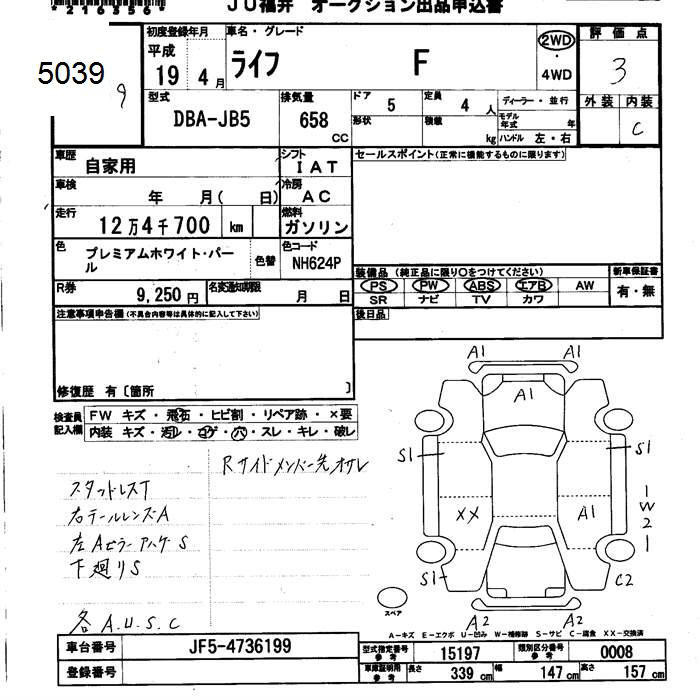 *216356*
JU福井 オークション出品申込書
5039
9
初度登録年月
平成
19 4月
車名・グレード
ライフ F
2WD
・
4WD
評価点
3
外装 内装
C
型式
DBA-JB5
排気量
658
CC
ドア
5
定員
4 人
形状
積載
kg
ディーラー・並行
モデル
年式 年
ハンドル 左・右
車歴
自家用
シフト
IAT
セールスポイント(正常に機能するものに限ります)
車検
年 月( 日)
冷房
AC
走行
12万4千700 km
燃料
ガソリン
色
プレミアムホワイト・パー
ル
色替
色コード
NH624P
R券
9,250円
名変通知期限
月 日
装備品 (純正品に限り○をつけてください)
PS PW ABS エアB AW
SR ナビ TV カワ
新車保証書
有・無
後日品
注意事項申告欄(不具合内容等は具体的に記入して下さい)
修復歴 有〔箇所 〕
検査員
記入欄
FW キズ・飛石・ヒビ割・リペア跡・×要
内装 キズ・汚レ・コゲ・穴・スレ・キレ・破レ
Rサイドメンバー先オサレ
スタットレスT
右テールレンズA
左Aピラーアハゲ S
下廻りS
各 A.U.S.C
A1 A1
A1
S1 S1
XX A1
W2
S1 C2
A2 A2
スペア
A-キズ E-エクボ U-凹み W-補修跡 S-サビ C-腐食 XX-交換済
車台番号
JF5-4736199
登録番号
型式指定番号
参考
15197
類別区分番号
参考
0008
車庫証明用
参考
長さ
339 cm
幅
147 cm
高さ
157 cm